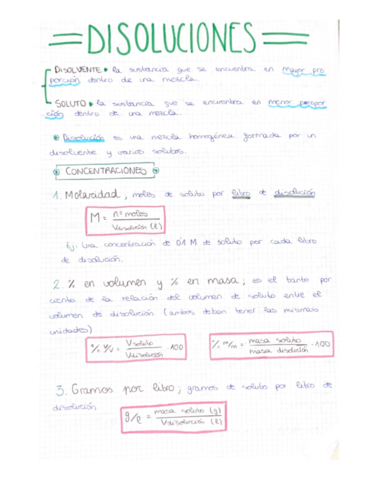 DISOLUCIONES
DISOLVENTE • la sustancia que se encuentra en mayor pro
porción dentro de una mezcla.
SOLUTO • la sustancia que se encuentra en menor propor
ción dentro de una mezcla.
Disolución es una mezcla homogénea formada por un
disolvente y varios solutos.
CONCENTRACIONES
1. Molaridad; moles de soluto por litro de disolución
M = nº moles / Vdisolución (l)
Ej: Una concentración de 0'1 M de soluto por cada litro
de disolución.
2. % en volumen y % en masa; es el tanto por
ciento de la relación del volumen de soluto entre el
volumen de disolución (ambos deben tener las mismas
unidades)
% V/V = V soluto / Vdisolución · 100
% m/m = masa soluto / masa disolución · 100
3. Gramos por litro; gramos de soluto por litro de
disolución
g/l = masa soluto (g) / Vdisolución (l)